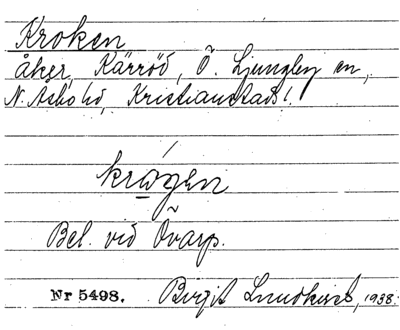 Kroken
åker, Kärröd, Ö. Ljungby sn,
N. Åsbo hd, Kristianstads l.
krǻgen
Bel. vid Övarp.
Nr 5498. Birgit Lundkvist, 1938.